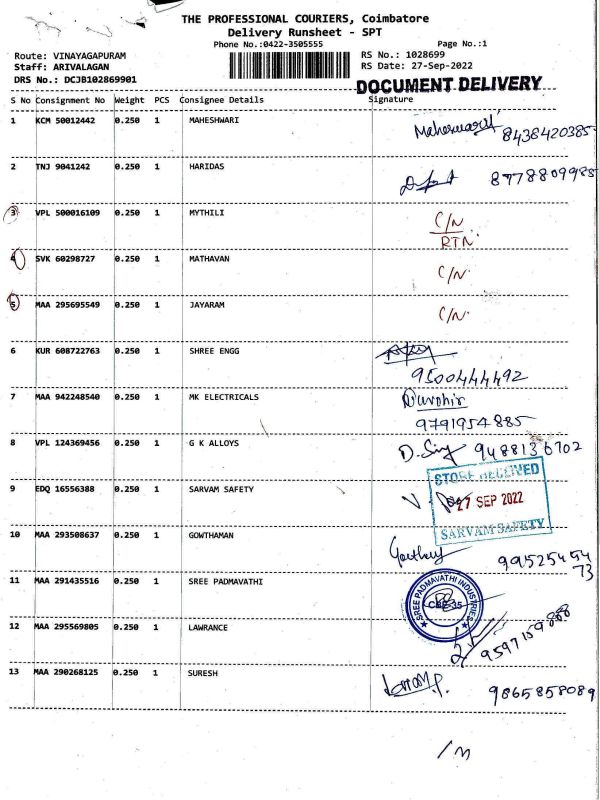 THE PROFESSIONAL COURIERS, Coimbatore
Delivery Runsheet - SPT
Phone No.:0422-3505555 Page No.:1
Route: VINAYAGAPURAM RS No.: 1028699
Staff: ARIVALAGAN RS Date: 27-Sep-2022
DRS No.: DCJB102869901
DOCUMENT DELIVERY
S No Consignment No Weight PCS Consignee Details Signature
1 KCM 50012442 0.250 1 MAHESHWARI Maheswari 8438420385
2 TNJ 9041242 0.250 1 HARIDAS 8778809985
3 VPL 500016109 0.250 1 MYTHILI C/N
RTN.
4 SVK 60298727 0.250 1 MATHAVAN C/N.
5 MAA 295695549 0.250 1 JAYARAM C/N.
6 KUR 608722763 0.250 1 SHREE ENGG
9500444492
7 MAA 942248540 0.250 1 MK ELECTRICALS
9791954885
8 VPL 124369456 0.250 1 G K ALLOYS 9488136702
STORE RECEIVED
9 EDQ 16556388 0.250 1 SARVAM SAFETY 27 SEP 2022
SARVAM SAFETY
10 MAA 293508637 0.250 1 GOWTHAMAN 99525454
73
11 MAA 291435516 0.250 1 SREE PADMAVATHI
SREE PADMAVATHI INDUSTRIES
CBE-35
12 MAA 295569805 0.250 1 LAWRANCE 9597159888
13 MAA 290268125 0.250 1 SURESH 9865858089